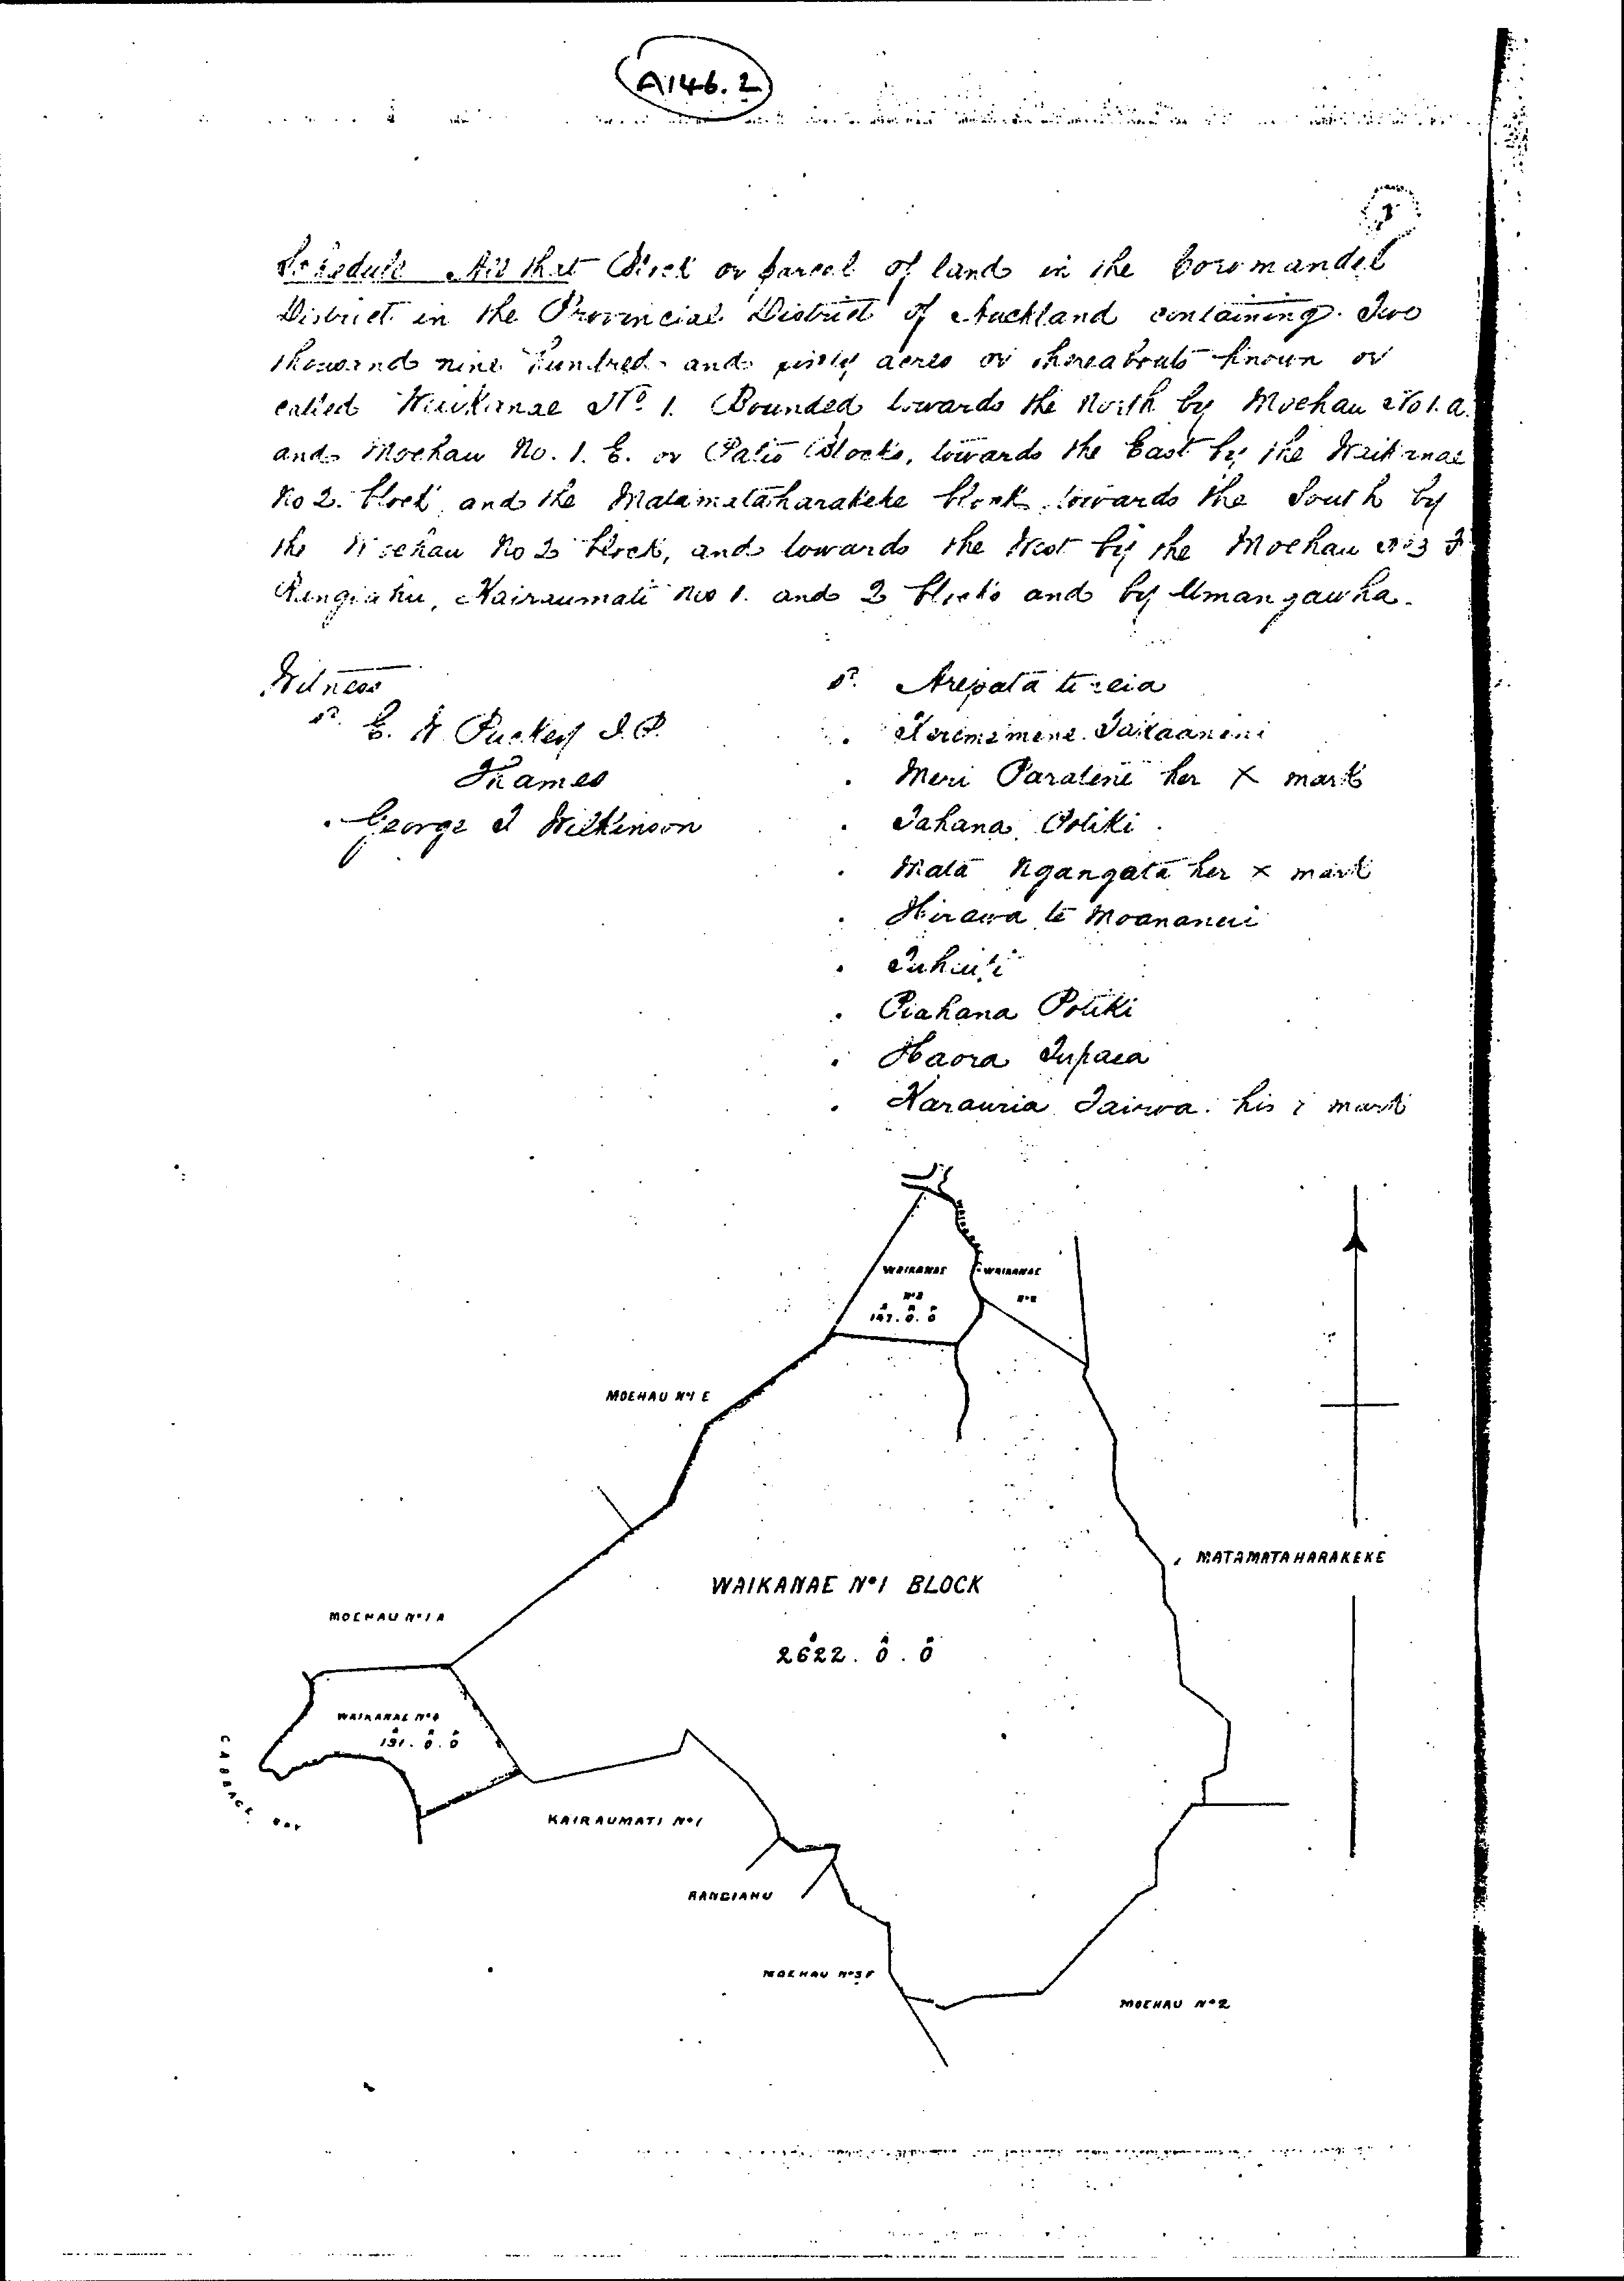 A146.2
Schedule All that Block or parcel of land in the Coromandel
District in the Provincial District of Auckland containing Two
thousand nine hundred and acres or thereabouts known or
called Waikanae No. 1. Bounded towards the North by Moehau No 1. a.
and Moehau No. 1. E. or Blocks, towards the East by the Waikanae
No 2. block and the Matamataharakeke block towards the South by
the Moehau No 2 block, and towards the West by the Moehau No 3 F
Rangiahu, Kairaumati No 1. and 2 blocks and by Umangawha.
Witness
E. W. Puckey J.P.
Thames
George T Wilkinson
Arepata te reia
Meri Paratene her X mark
Tahana Potiki
Mata Ngangata her x mark
Hirawa te Moananui
Piahana Potiki
Haora Tupaea
Karauria his mark
WAIKANAE
147. 0. 0
WAIKANAE
MOEHAU No 1 E
MATAMATAHARAKEKE
WAIKANAE No 1 BLOCK
2622. 0. 0
MOEHAU No 1 A
WAIKANAE No 4
191. 0. 0
CABBAGE BAY
KAIRAUMATI No 1
RANGIAHU
MOEHAU No 3F
MOEHAU No 2